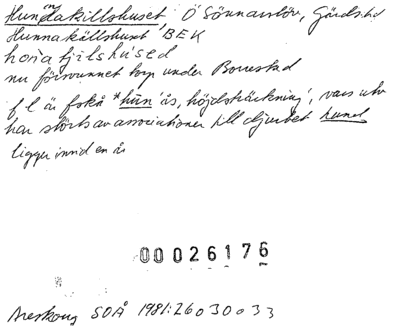 Hundakillshuset, Ö Sönnarslöv, Gärds hd
Hunnakällshuset BEK
nu försvunnet torp under Borrestad
f l är fskå *hūn 'ås, höjdsträckning', vars utv
har störts av associationer till djuret hund
Ligger invid en å
00026176
Areskoug SOÅ 1981:26 o 30 o 33